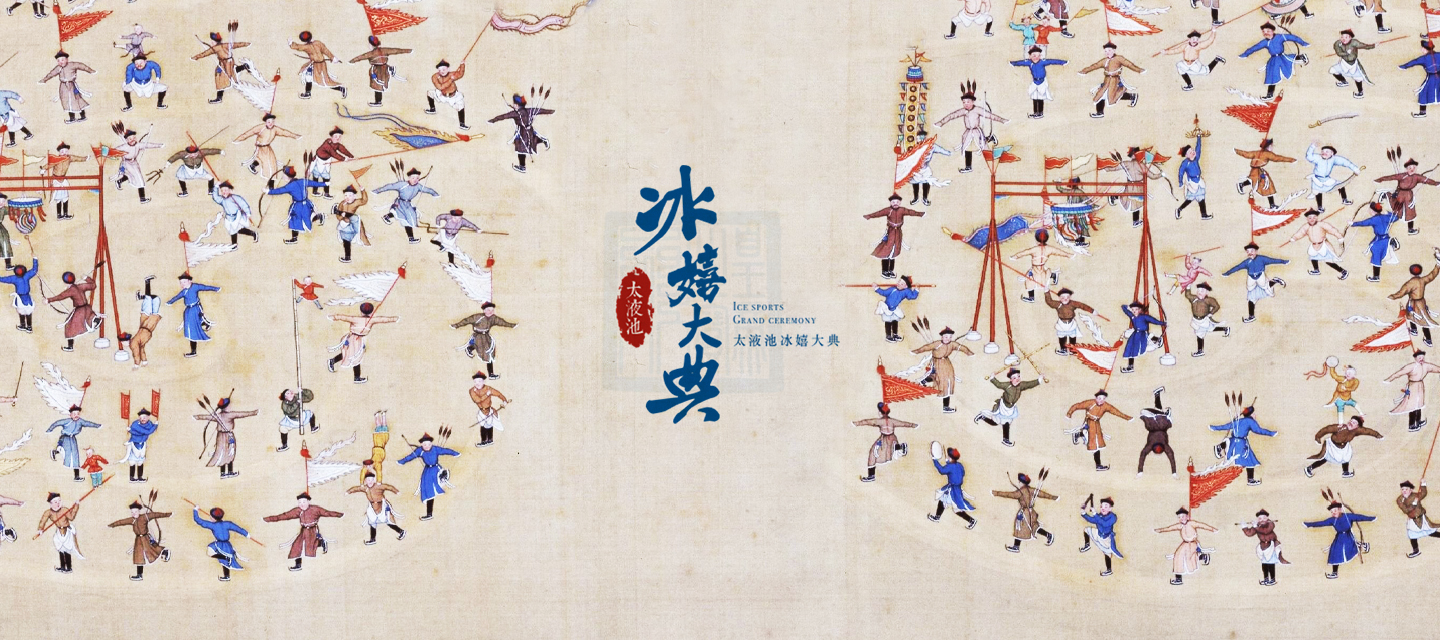 冰嬉大典
太液池
ICE SPORTS
GRAND CEREMONY
太液池冰嬉大典